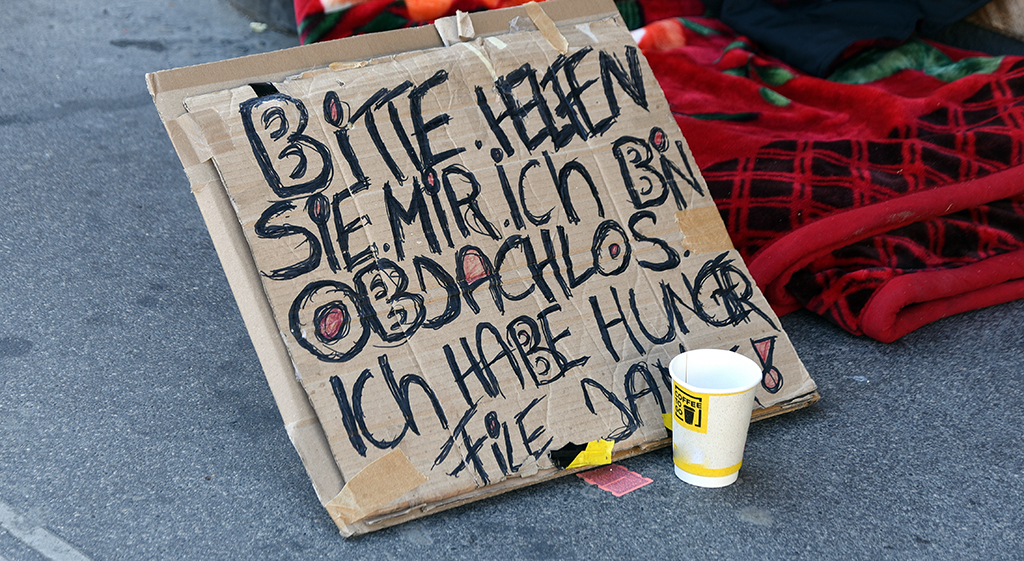 BiTTE. HELFEN
SiE. MiR. iCh BiN
OBDACHLOS.
iCh HABE HUNGR
FiLE DANK!
COFFEE